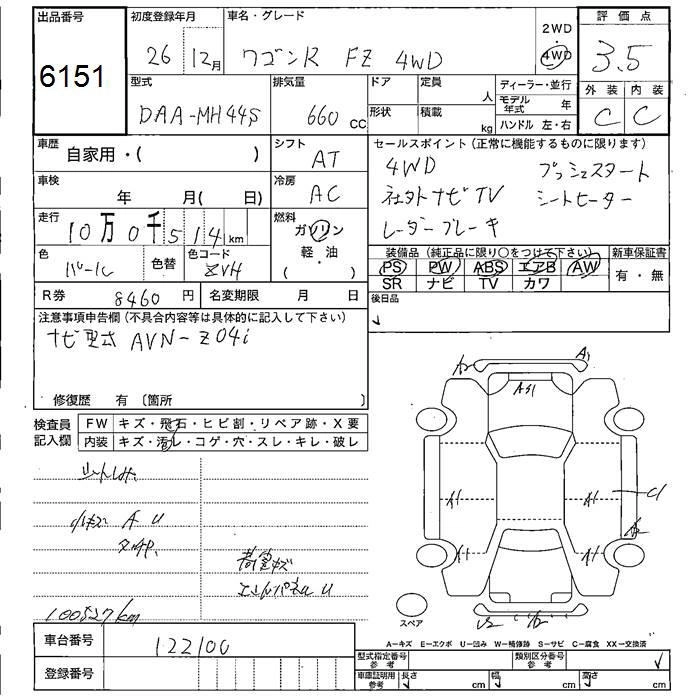 出品番号 初度登録年月 車名・グレード 評価点
6151 26 12月 ワゴンR FZ 4WD 2WD 4WD 3.5
型式 排気量 ドア 定員 人 ディーラー・並行 外装 内装
DAA-MH44S 660 cc 形状 積載 kg モデル年式 年 ハンドル 左・右 C C
車歴 自家用・( ) シフト AT セールスポイント(正常に機能するものに限ります)
4WD プッシュスタート
車検 年 月( 日) 冷房 AC 社外ナビTV シートヒーター
走行 10万0千514km 燃料 ガソリン 軽・油 ( ) レーダーブレーキ
色 パール 色替 色コード ZVH 装備品(純正品に限り○をつけて下さい) 新車保証書
PS PW ABS エアB AW 有・無
SR ナビ TV カワ
R券 8460円 名変期限 月 日 後日品
注意事項申告欄(不具合内容等は具体的に記入して下さい)
ナビ型式 AVN-Z04i
修復歴 有 〔箇所 〕
検査員記入欄 FW キズ・飛石・ヒビ割・リペア跡・X要
内装 キズ・汚レ・コゲ・穴・スレ・キレ・破レ
A1
A1 A1
A1 A1
A U
荷室キズ
100527km
スペア
A-キズ E-エクボ U-凹み W-補修跡 S-サビ C-腐食 XX-交換済
車台番号 122100 型式指定番号 参考 類別区分番号 参考
登録番号 車庫証明用 参考 長さ cm 幅 cm 高さ cm